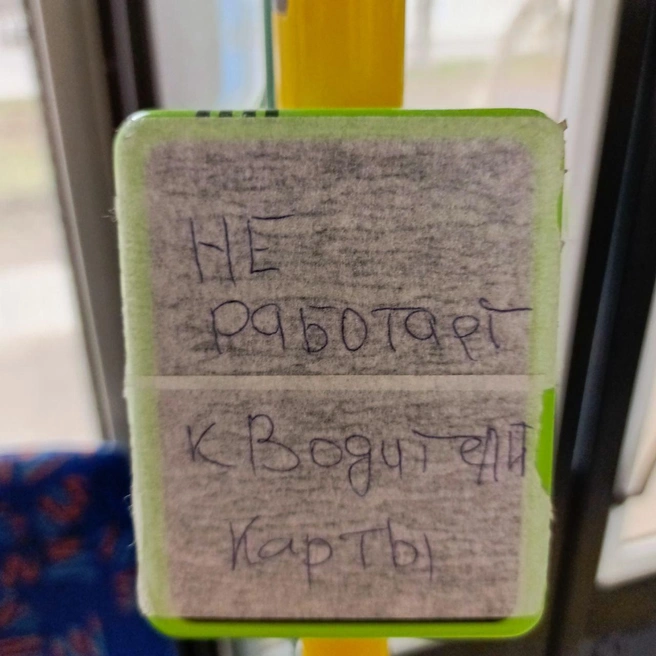 НЕ
работает
к Водителю
карты